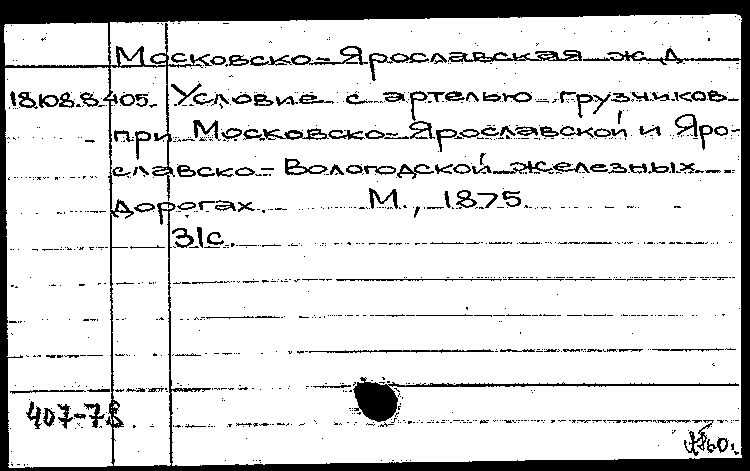 Московско-Ярославская ж.д
18.108.8.405. Условие с артелью грузчиков
при Московско-Ярославской и Яро-
славско-Вологодской железных
дорогах. М., 1875.
31с.
407-78